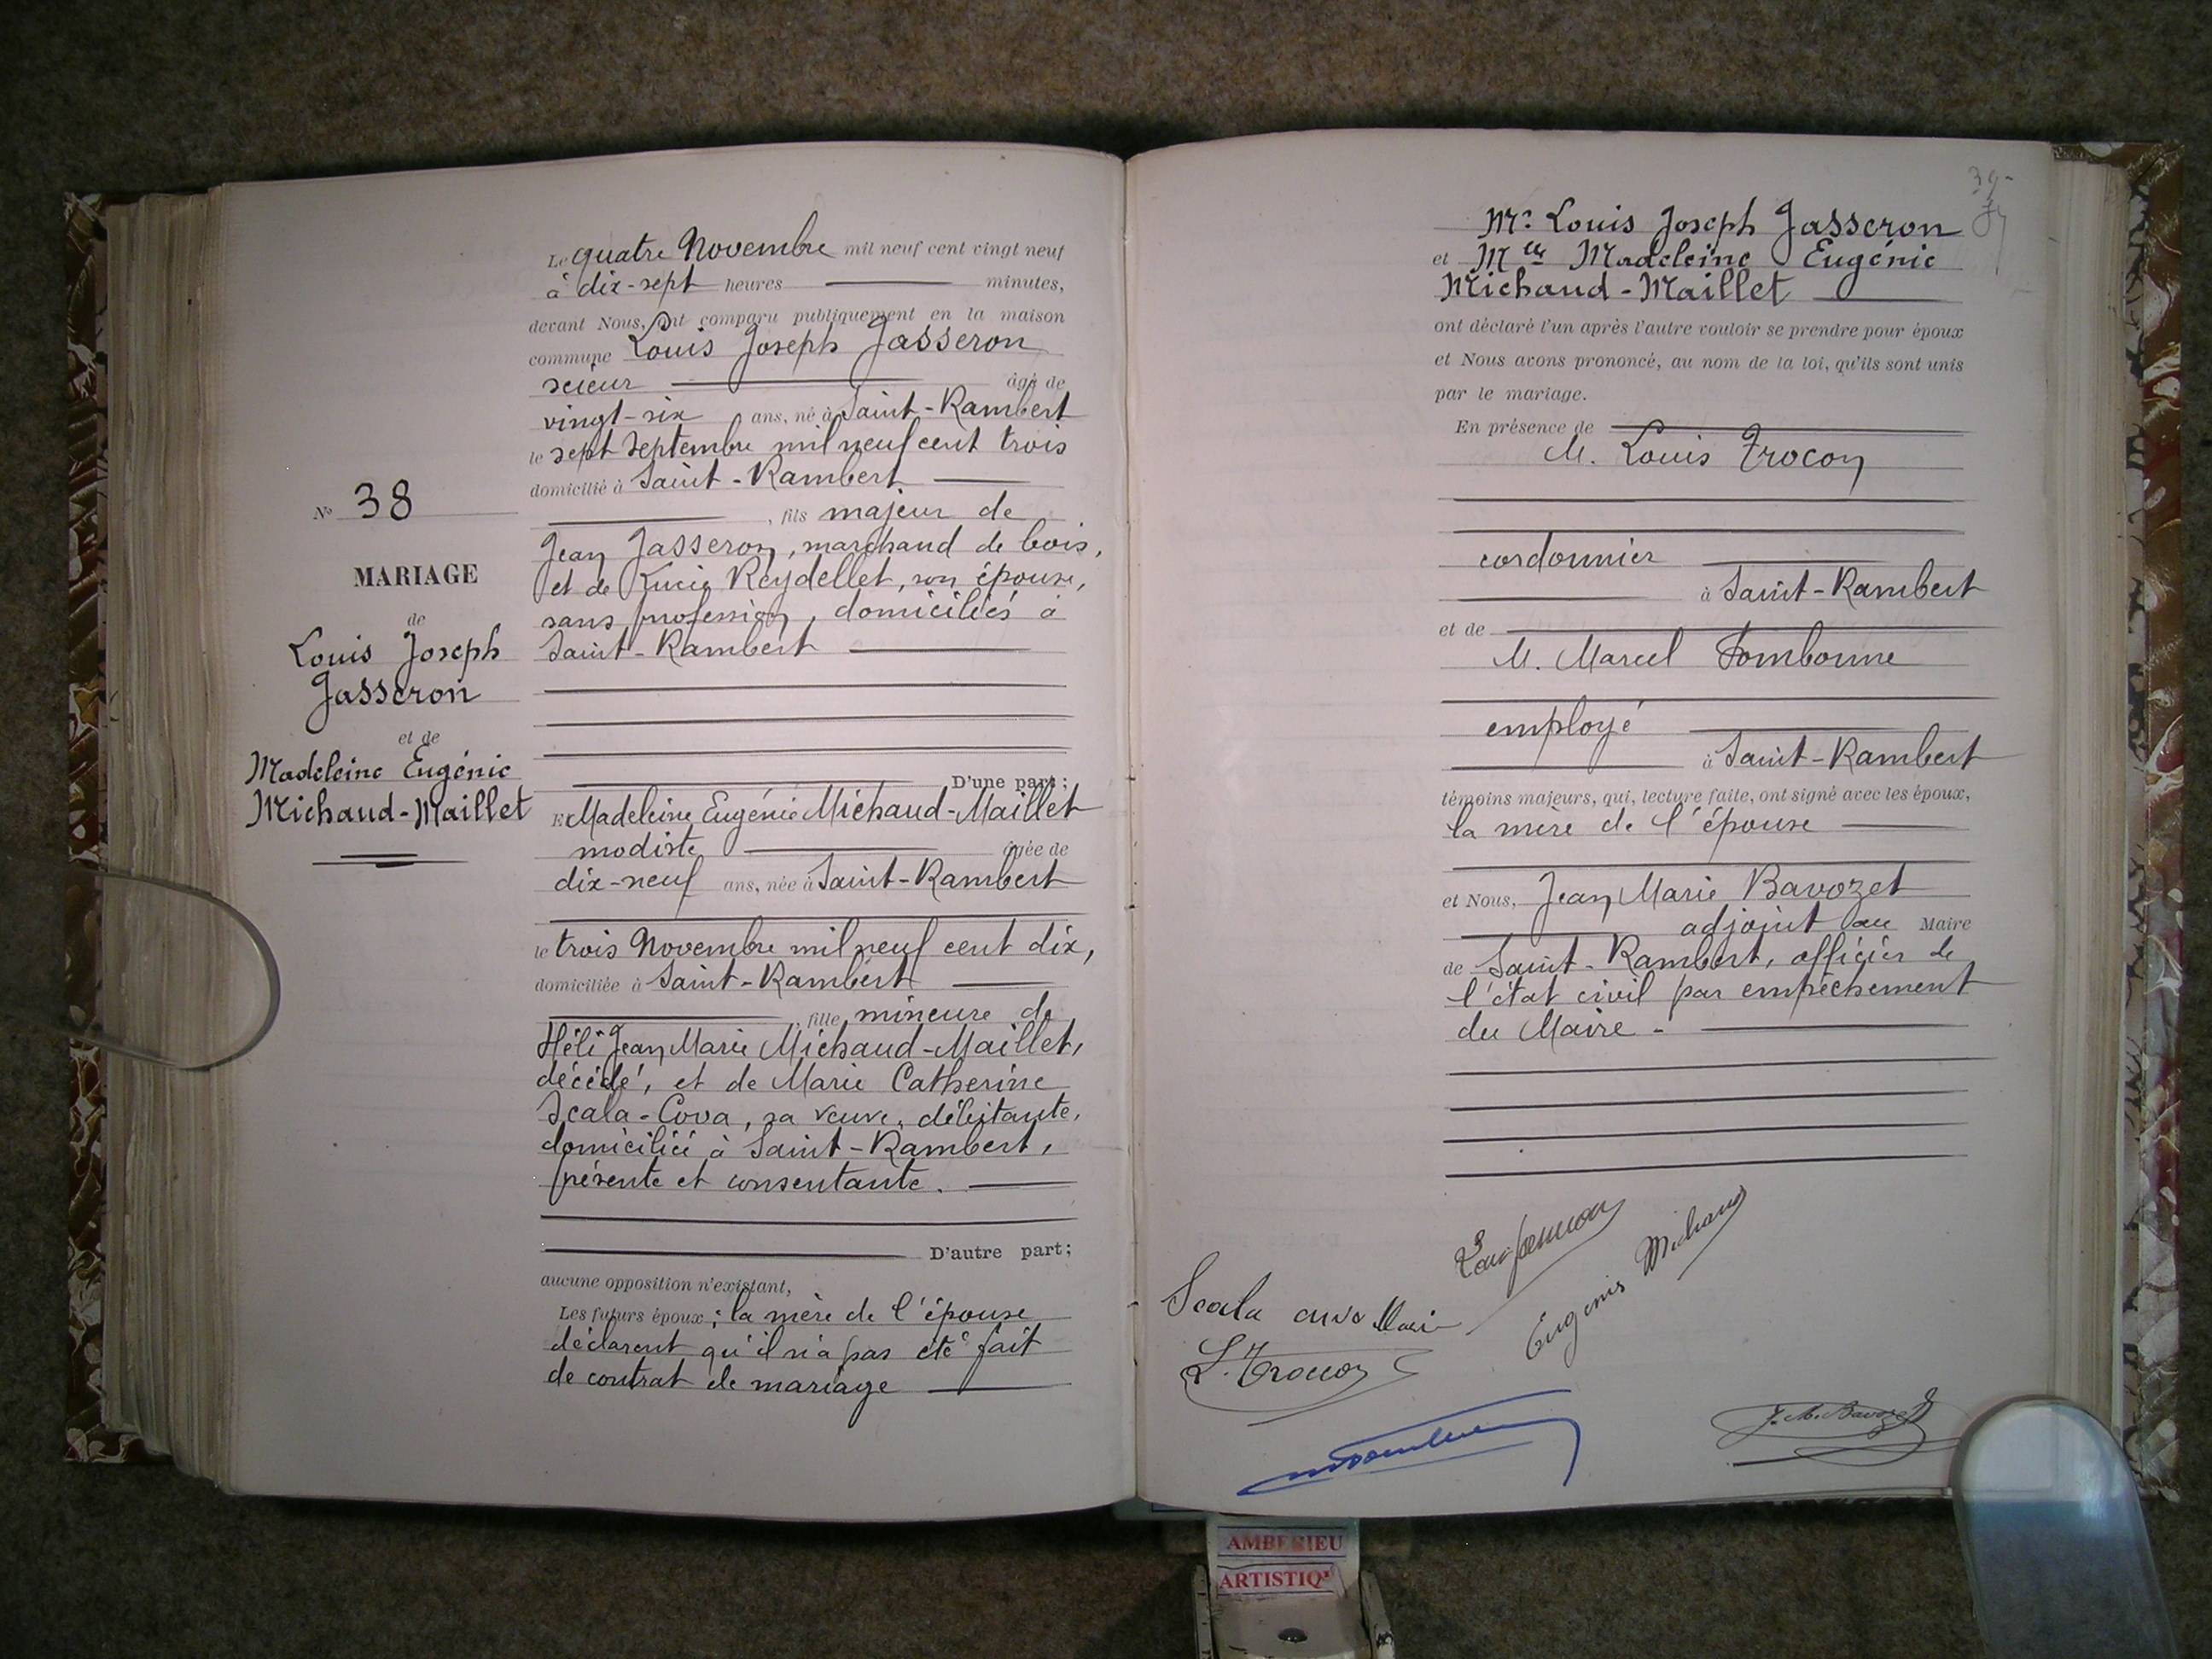 Le quatre Novembre mil neuf cent vingt neuf
à dix-sept heures minutes,
devant Nous, ont comparu publiquement en la maison
commune Louis Joseph Jasseron
scieur âgé de
vingt-six ans, né à Saint-Rambert
le sept Septembre mil neuf cent trois
domicilié à Saint-Rambert
, fils majeur de
Jean Jasseron, marchand de bois,
et de Lucie Reydellet, son épouse,
sans profession, domiciliés à
Saint-Rambert
D'une part;
Et Madeleine Eugénie Michaud-Maillet
modiste âgée de
dix-neuf ans, née à Saint-Rambert
le trois Novembre mil neuf cent dix,
domiciliée à Saint-Rambert
, fille mineure de
Héli Jean Marie Michaud-Maillet,
décédé, et de Marie Catherine
Scala-Cova, sa veuve, débitante,
domiciliée à Saint-Rambert,
présente et consentante.
D'autre part;
aucune opposition n'existant,
Les futurs époux ; la mère de l'épouse
déclarent qu'il n'a pas été fait
de contrat de mariage
No 38
MARIAGE
de
Louis Joseph
Jasseron
et de
Madeleine Eugénie
Michaud-Maillet
39
Mr. Louis Joseph Jasseron
et Melle Madeleine Eugénie
Michaud-Maillet
ont déclaré l'un après l'autre vouloir se prendre pour époux
et Nous avons prononcé, au nom de la loi, qu'ils sont unis
par le mariage.
En présence de
M. Louis Trocon
cordonnier
à Saint-Rambert
et de
M. Marcel Tombonne
employé
à Saint-Rambert
témoins majeurs, qui, lecture faite, ont signé avec les époux,
la mère de l'épouse
et Nous, Jean Marie Bavozet
adjoint au Maire
de Saint-Rambert, officier de
l'état civil par empêchement
du Maire.
Eugénie Michaud
Scala
L. Trocon
J. M. Bavozet
AMBERIEU
ARTISTIQ